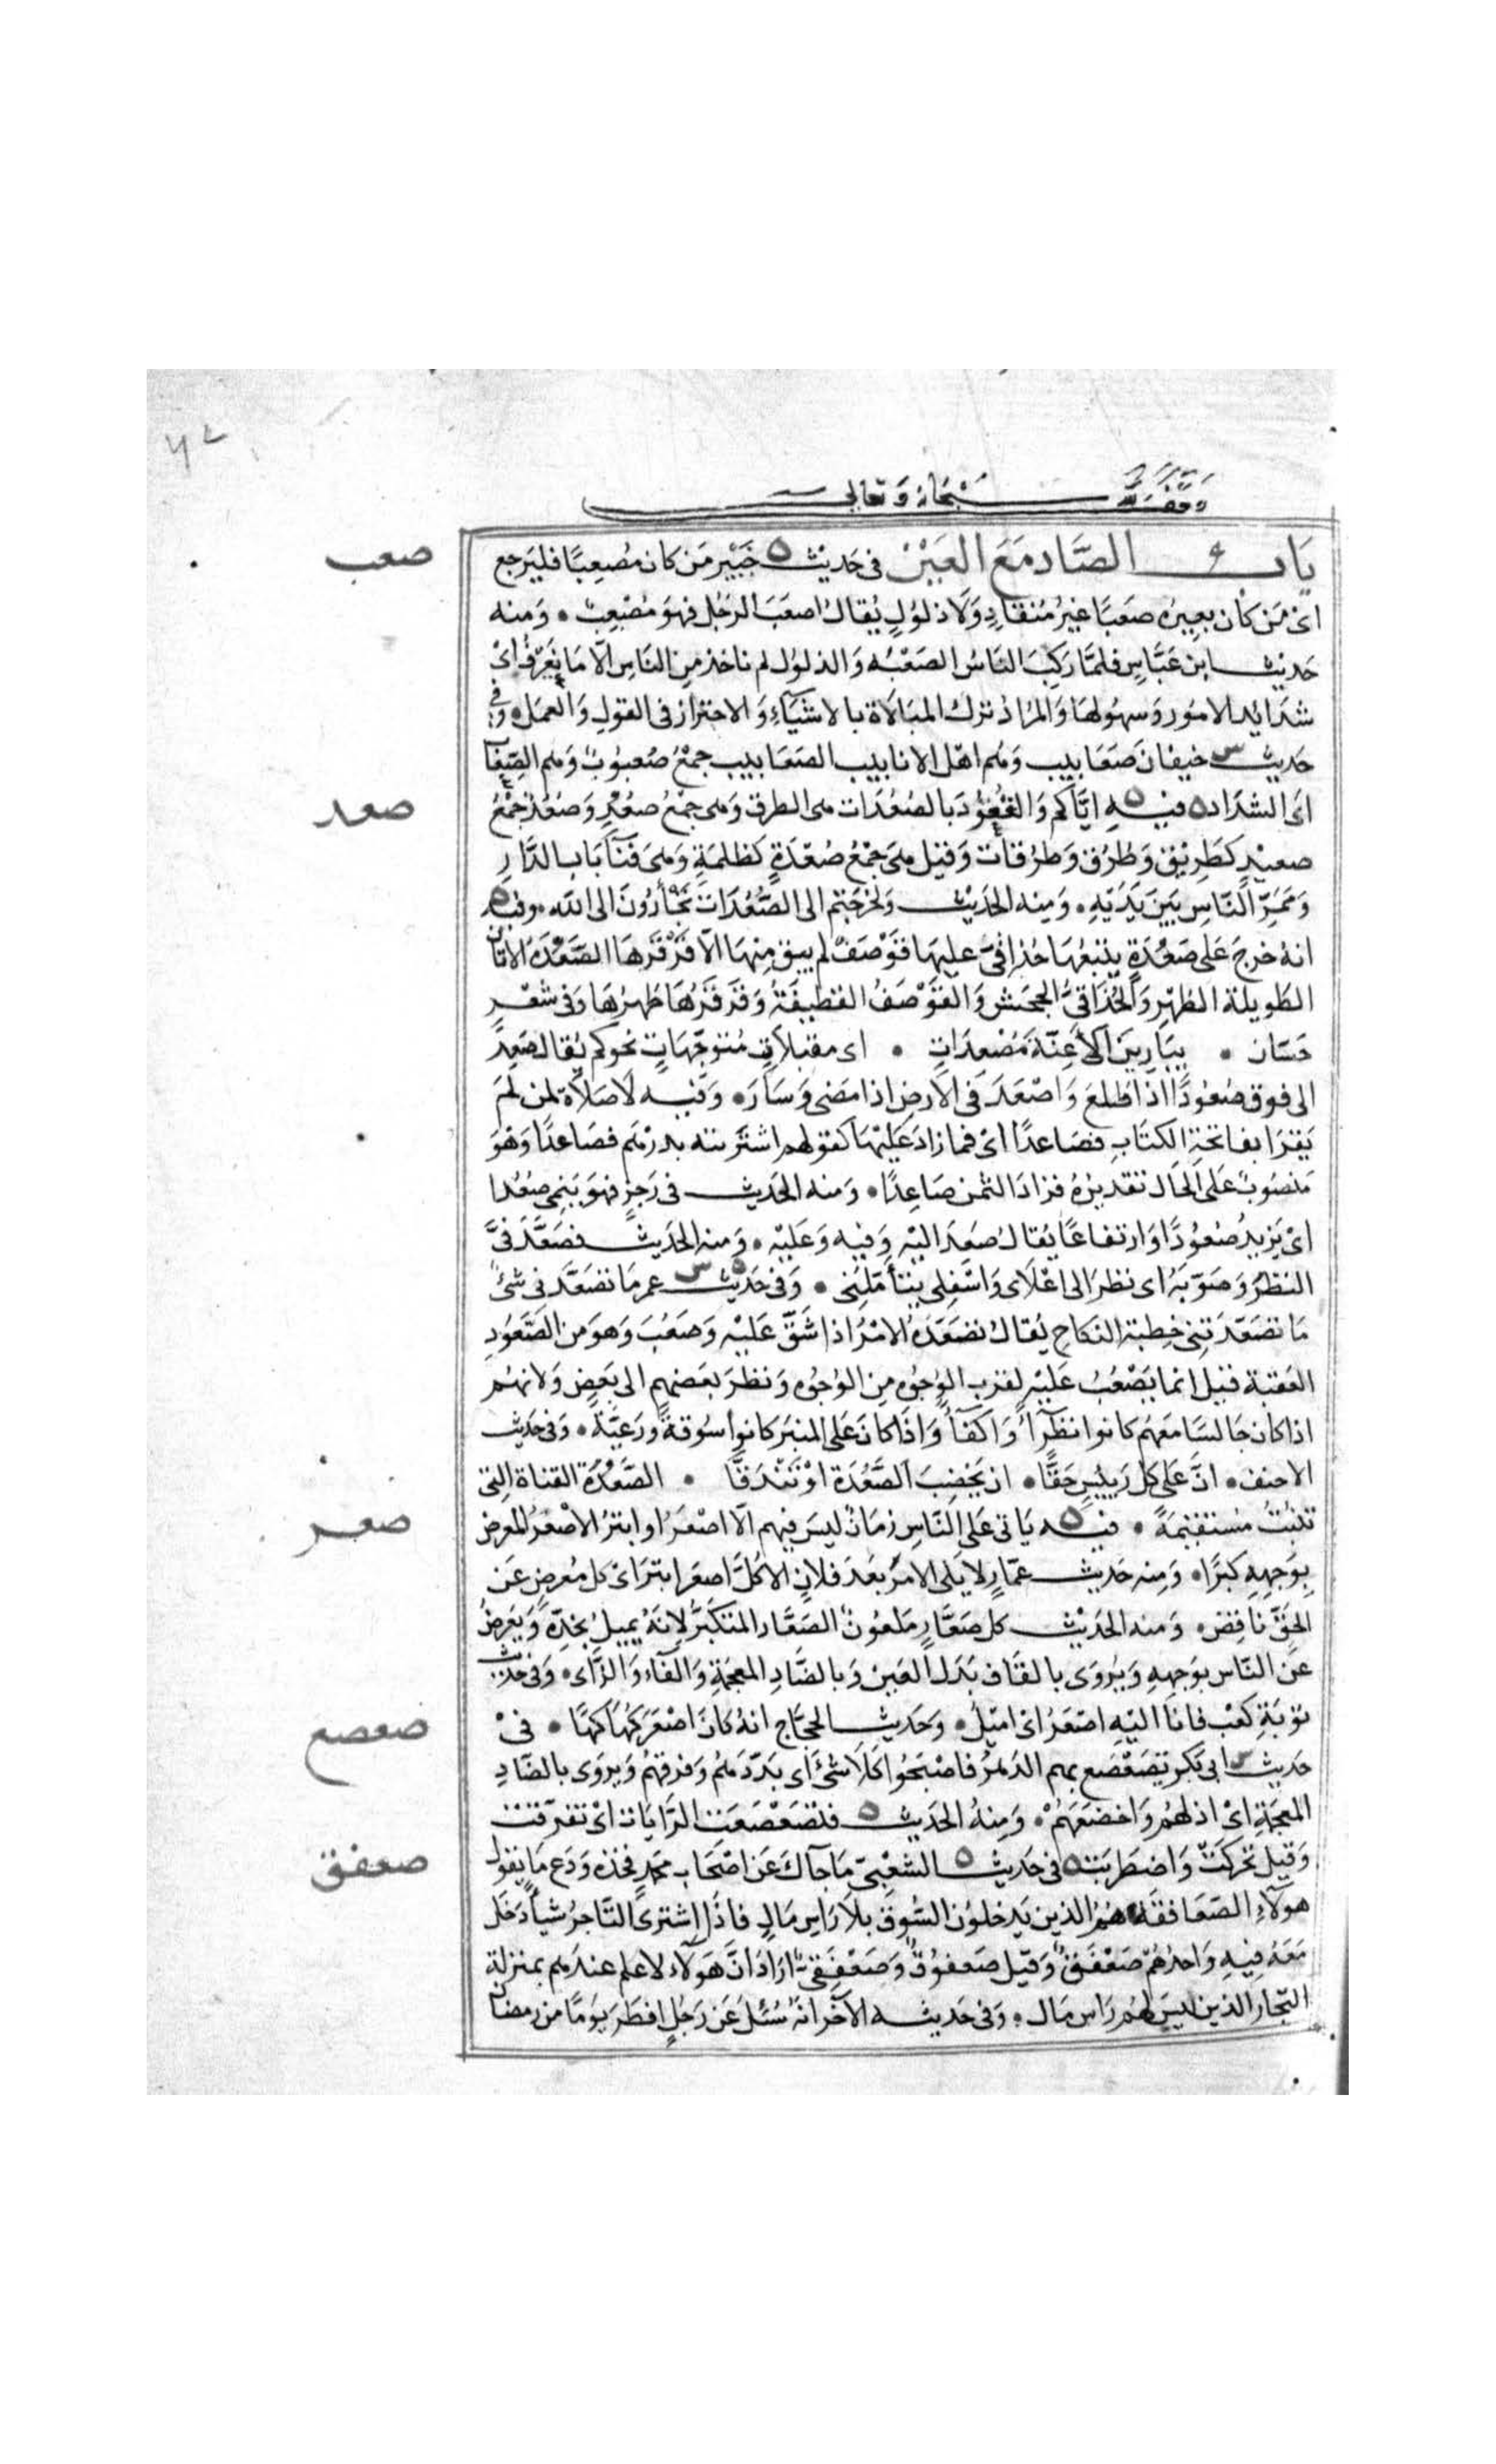 وقف لله سبحانه وتعالى
باب الصَّاد مَعَ العَيْن في حَديث ه خَيْبَر مَن كان مُصْعِبًا فليَرجع
صعب
اىْ مَن كان بعيره صَعبًا غيرُ مُنقادٍ وَلاَ ذلوُلٍ يُقالُ اصعَبَ الرجُل فهوَ مُصْعِبٌ • وَمنه
حَديث ابن عَبَّاسٍ فلمَّا رَكِبَ النَاسُ الصَعْبُه وَالذلوُل لم ناخذ مِن النَاسِ الاّ مَا نَعْرفُ اىْ
شدَايد الامُور وَسهُولهَا وَالمرَاد ترك المبَالاَة بالاشيَآءِ وَالاحتراز فى القولِ وَالعمَل • وَفى
حَديث س خيفانَ صَعَابيب وَهُم اهْل الانابيب الصَعَابيب جمْعُ صُعبوُبٌ وَهم الصِعَاب
اى الشدَاد ه فيه ه ايّاكم وَالقُعُوُدَ بالصُعُدَات هى الطرق وَهى جمْعُ صُعُدٍ وَصُعُدٌ جَمْعُ
صعد
صعيْدٍ كطَرِيْقٍ وَطُرُق وَطرُقَات وَقيل هىَ جمْعُ صُعْدَةٍ كظلمَةٍ وَهىَ فنَآ بَابِ الدَّارِ
وَمَمَرّ النَّاسِ بَيَن يَدَيْهِ • وَمِنه الحَديْث وَلخرَجتم الى الصُّعُدَات تَجْأَرُونَ الى الله • وفيه ه
انهُ خرجَ عَلى صَعْدَةٍ يتبعُهَا حُذاقىّ عليهَا قوْصَفٌ لم يبق مِنهَا الاّ قَرْقَرهَا الصَّعْدَه الاتَان
الطَويلة الظهْرِ وَالحُذَاقىُّ الجحش وَالقوْصَفُ القطيفَةُ وَقرقَرُهَا ظهرُهَا وَفى شعْرِ
حَسّان • يبَارِينَ الأَعِنّةَ مُصْعِدَاتٍ • اى مقبلاَتٍ مُتوَجّهَاتٍ نحوكم يُقال صَعِدَ
الى فوق صُعُودًا اذا طلعَ وَاصْعَدَ فى الارضِ اذا مَضى وَسَارَ • وَفيه لاَ صَلاَة لمن لَمَ
يَقرَا بفاتحَةِ الكتَابِ فصَاعدًا اىْ فما زادَ عَليْهَا كقولهم اشترَيته بدرْهَم فصَاعدًا وَهوَ
مَنصوُبٌ عَلى الحَال تقديرُهُ فزادَ الثمن صَاعِدًا • وَمنه الحَديث فى رَجَزٍ فهوَ يَنمى صُعُدا
اىْ يَزيدُ صُعوُدًا وَارتفاعًا يُقالُ صَعِدَ اليْهِ وَفيه وَعَليْه • وَمنه الحَديث فصَعَّدَ فىَّ
النظرَ وَصَوّبَهُ اى نظرَ الى اعْلاَى وَاسْفلى يتأمّلنِى • وَفى حَديث ه س عمر مَا تصَعّدَ فى شىْءٍ
مَا تصَعّدَتنِى خِطبة النكاحِ يُقالُ تصَعّدَهُ الامْرُ اذا شَقّ عَليْه وَصَعُبَ وَهوَ من الصَّعُودِ
العَقبَة قيل انما يَصْعُبُ عَليْهِ لقربِ الوُجوُهِ مِن الوُجوُه وَنظرَ بَعضهم الى بَعضٍ وَلانهُم
اذا كان جَالسًا مَعَهُم كانوا نظرآءً وَاكفاءً وَاذا كانَ عَلى المنبَر كانوا سُوقةً وَرَعيَّةً • وَفى حَديث
الاحنف • انَّ عَلى كل رَئيسٍ حَقًّا • ان يَخْضِبَ الصَّعْدَةَ اوْ تَنْدَقّا • الصَّعْدَة القناة التِى
تنبُتُ مُستقيْمَةً • فيه ه يَاتى عَلى النَّاسِ زمَانٌ ليسَ فيهم الاّ اصْعَرُ او ابترُ الاصْعَرُ المُعرض
صعر
بوَجههِ كبَرًا • وَمِنه حَديث عمَّارٍ لاَ يَلى الامرَ بعْدَ فلانٍ الاّ كلُّ اصعَرَ ابترَ اىْ كل مُعرضٍ عَن
الحَقّ ناقِض • وَمنه الحَديْث كل صَعَّارٍ مَلعُونٌ الصَعَّار المتكبّرُ لانهُ يميلُ بخدِّهِ وَيَعرضُ
عَن النَاس بوَجههِ وَيُروَى بالقاف بَدَل العَين وَبالضَّادِ المعجَمةِ وَالفآء وَالزَّاى • وَفى حَديث
توْبَةِ كعْب فانا اليْهِ اصْعَرُ اىْ اميْلُ • وَحَديث الحجّاج انهُ كانَ اصْعَرَ كُهَاكِهًا • فىْ
صعصع
حَديث س ابى بكرٍ تصَعْصَع بهم الدَهرُ فاصْبَحُوا كلاَ شىْءَ اى بَدّدَهُم وَفرقهُمْ وَيروَى بالضَادِ
المعجَمَةِ اىْ اذلهُم وَاخضَعَهُمْ • وَمِنهُ الحَديث ه فتصَعْصَعَت الرَّايَات اىْ تفرّقتْ
وَقيل تحركتْ وَاضطرَبَت ه فى حَديث ه الشعْبىّ مَا جَآكَ عَن اصْحَاب محمدٍ فخذه وَدَع مَا يَقول
صعفق
هولاَءِ الصَعَافقَه هُمُ الذين يَدخلوُن السُوق بلاَ رَاسِ مَالٍ فاذَا اشترى التَاجرُ شيأً دَخل
مَعَهُ فِيهِ وَاحدُهُمْ صَعْفَقٌ وَقيل صَعفوُقٌ وَصَعْفَقىٌّ ارَادَ انَّ هَولاَء لا علم عندَهم بمنزلة
التجار الذين ليسَ لهُم رَاس مَال • وَفى حَديثه الآخَر انهُ سُئلَ عَن رَجُلٍ افطرَ يَومًا من رمضان